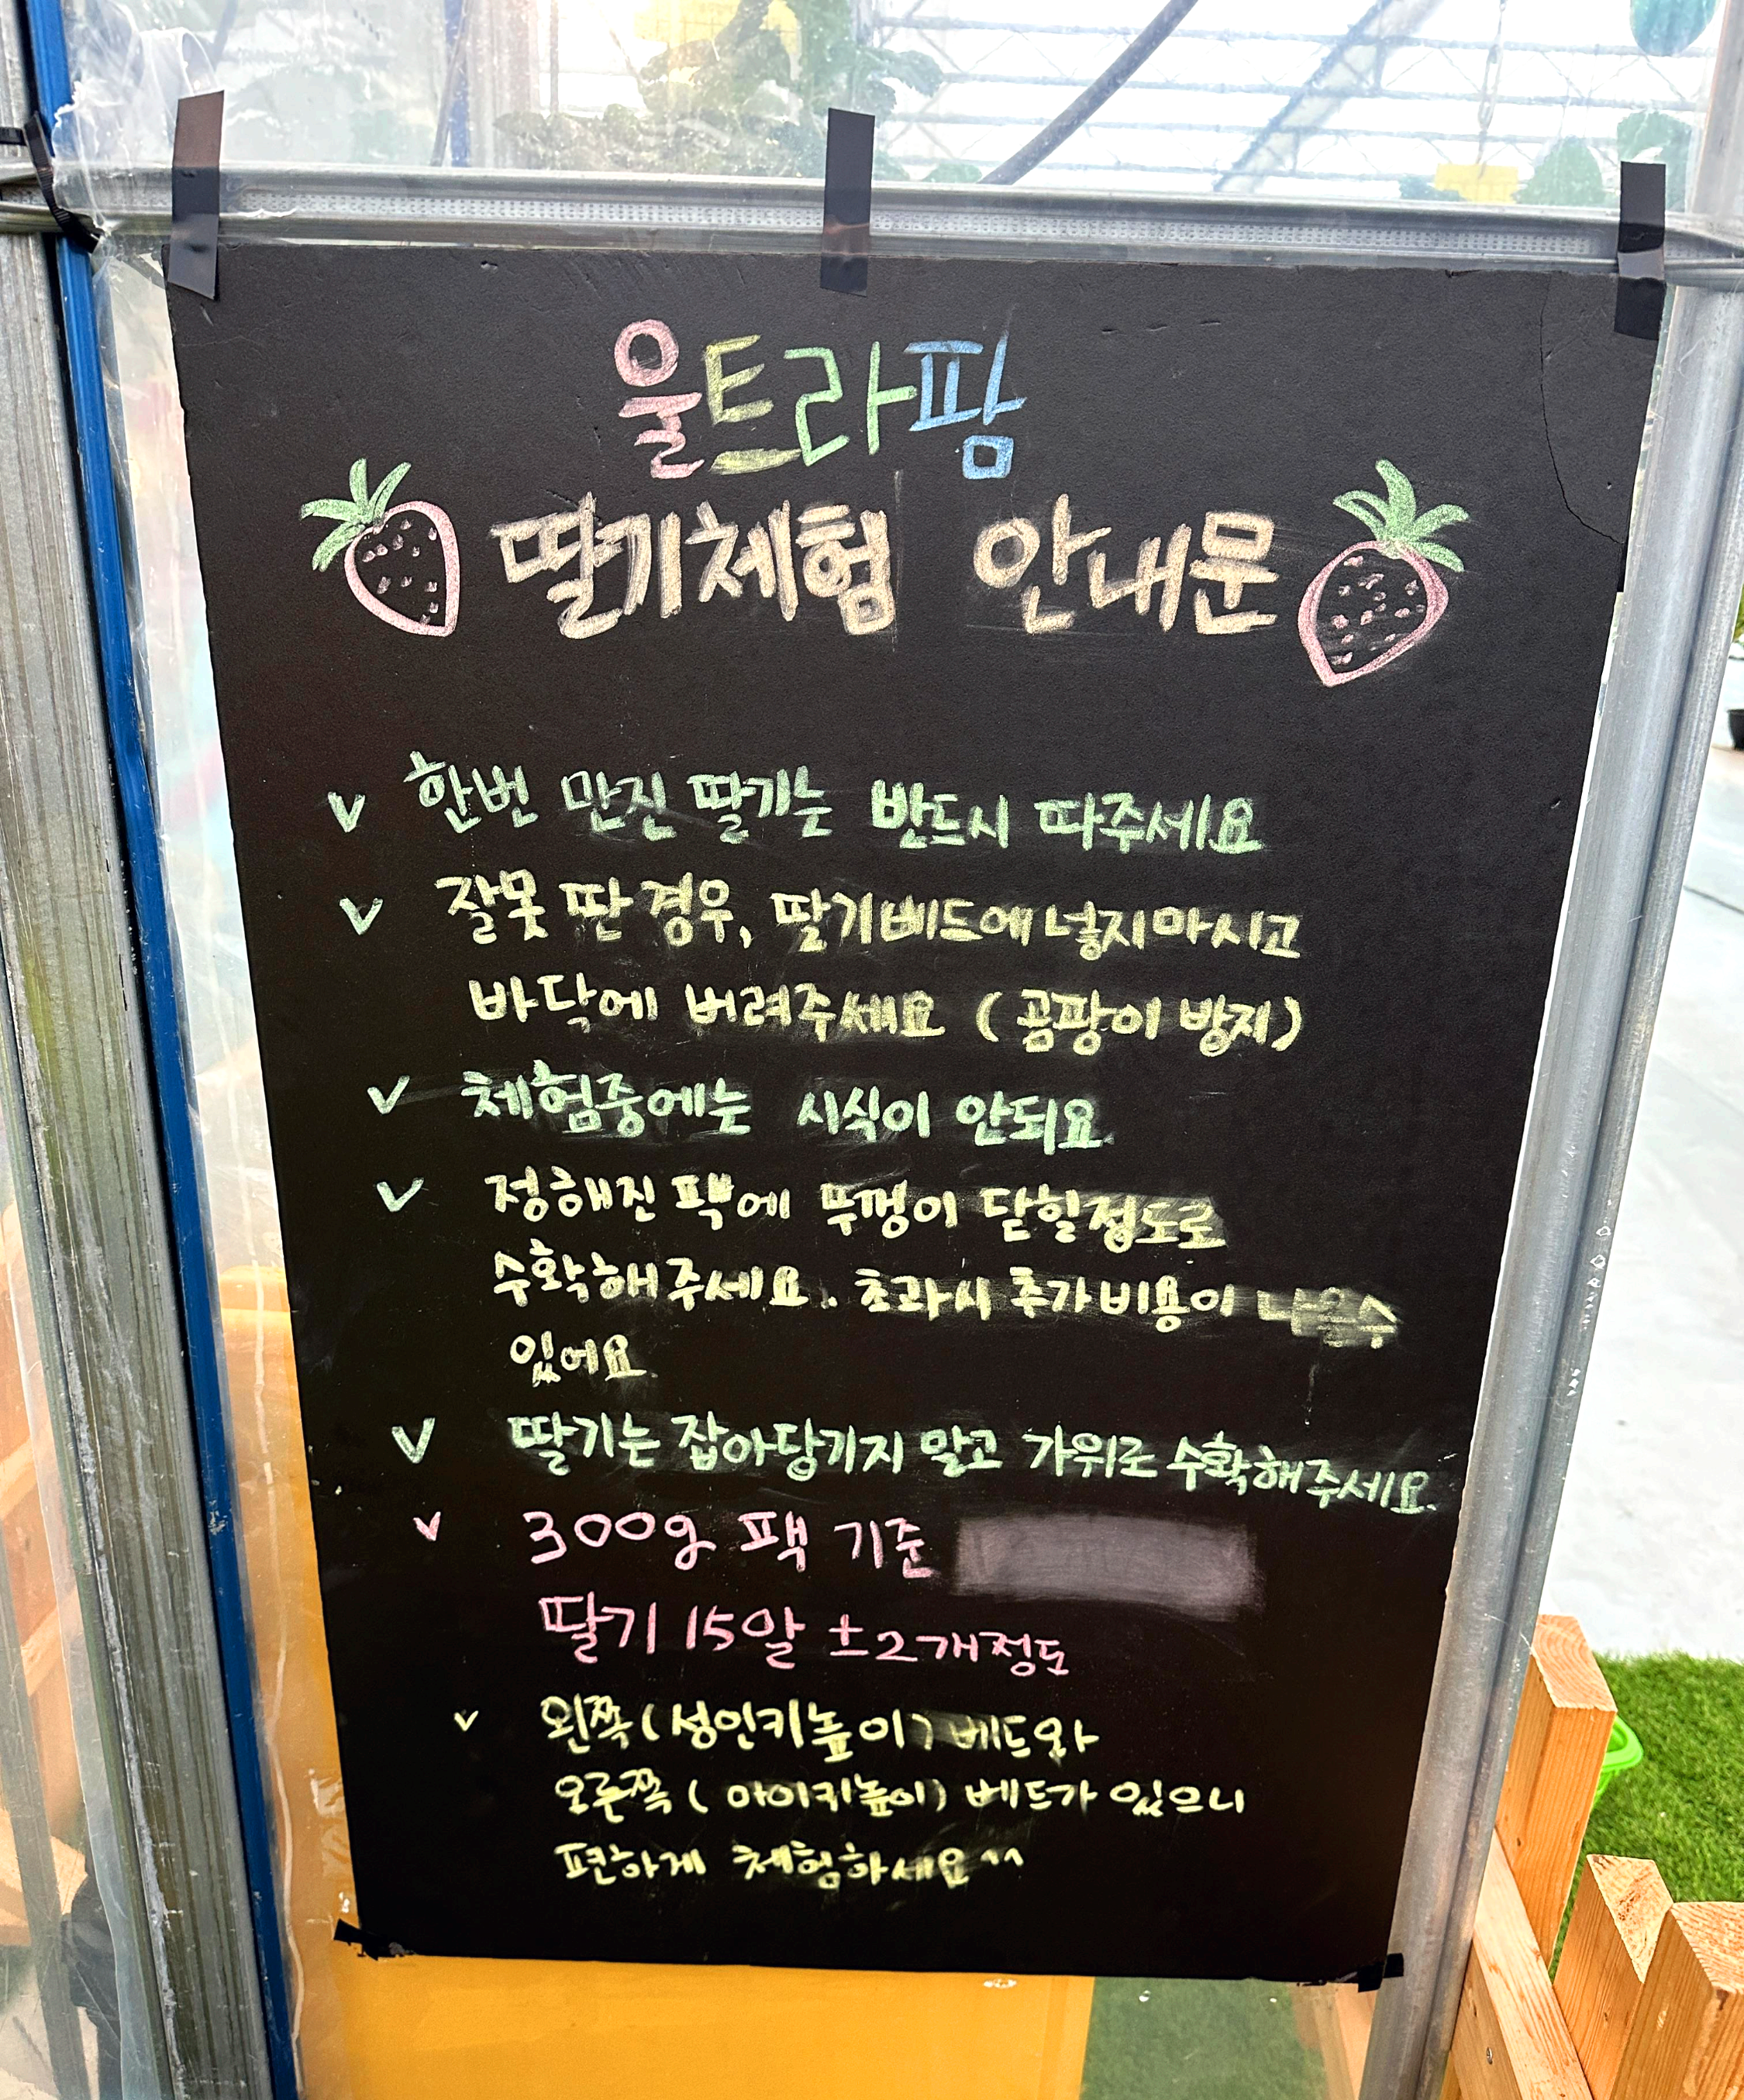 울트라팜
딸기체험 안내문
v 한번 만진 딸기는 반드시 따주세요
v 잘못 딴 경우, 딸기베드에 넣지마시고
바닥에 버려주세요 (곰팡이 방지)
v 체험중에는 시식이 안되요.
v 정해진 팩에 뚜껑이 닫힐정도로
수확해주세요. 초과시 추가비용이 나올수
있어요.
v 딸기는 잡아당기지 말고 가위로 수확해주세요.
v 300g 팩 기준
딸기 15알 ±2개정도
v 왼쪽(성인키높이) 베드와
오른쪽(아이키높이) 베드가 있으니
편하게 체험하세요^^